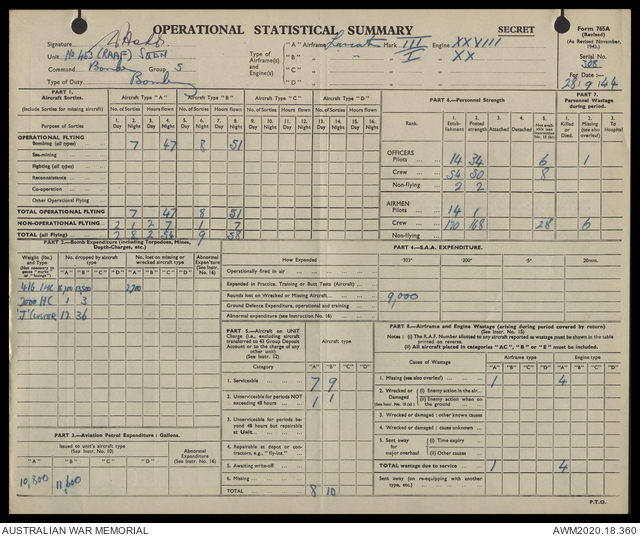 OPERATIONAL STATISTICAL SUMMARY SECRET
Form 765A
(Revised)
(As Revised November, 1943.)
Signature
Unit No 463 (RAAF) Sqdn
Command Bomber Group 5
Type of Duty Bombing
Type of Airframe(s) and Engine(s)
"A" Airframe Lancaster Mark III Engine XXVIII
"B" " " I " XX
"C"
"D"
Serial No. 308
For Date :—
28.9.44
PART 1.
Aircraft Sorties.
(include Sorties for missing aircraft)
Purpose of Sorties
Aircraft Type "A" Aircraft Type "B" Aircraft Type "C" Aircraft Type "D"
No. of Sorties Hours flown No. of Sorties Hours flown No. of Sorties Hours flown No. of Sorties Hours flown
1. Day 2. Night 3. Day 4. Night 5. Day 6. Night 7. Day 8. Night 9. Day 10. Night 11. Day 12. Night 13. Day 14. Night 15. Day 16. Night
OPERATIONAL FLYING
Bombing (all types) 7 47 8 51
Sea-mining
Fighting (all types)
Reconnaissance
Co-operation
Other Operational Flying
TOTAL OPERATIONAL FLYING 7 47 8 51
NON-OPERATIONAL FLYING 2 1 2 7 1 7
TOTAL (all flying) 2 8 2 54 9 58
PART 6.—Personnel Strength
PART 7.
Personnel Wastage during period.
Rank.
1. Establishment 2. Posted strength 3. Attached 4. Detached 5. Not available (see Instruction No. 13 (b)) 1. Killed or Died. 2. Missing (see also overleaf) 3. To Hospital
OFFICERS
Pilots 14 34 6 1
Crew 54 50 8
Non-flying 2 2
AIRMEN
Pilots 14 1
Crew 120 168 28 6
Non-flying
PART 2.—Bomb Expenditure (including Torpedoes, Mines, Depth-Charges, etc.)
Weight (lbs.) and Type
No. dropped by aircraft type
No. lost on missing or wrecked aircraft type
Abnormal Expenditure (See Instr. No. 16)
"A" "B" "C" "D" "A" "B" "C" "D"
2000 HC 1 3
"J" Cluster 12 36
PART 4.—S.A.A. EXPENDITURE.
How Expended ·303" ·300" ·5" 20mm.
Operationally fired in air
Expended in Practice, Training or Butt Tests (Aircraft)
Rounds lost on Wrecked or Missing Aircraft 9,000
Ground Defence Expenditure, operational and training
Abnormal expenditure (see Instruction No. 16)
PART 5.—Aircraft on UNIT Charge (i.e., excluding aircraft transferred to 43 Group Deposit Account or to the charge of any other unit) (See Instr. 12)
Aircraft type
Category "A" "B" "C" "D"
1. Serviceable 7 9
2. Unserviceable for periods NOT exceeding 48 hours 1 1
3. Unserviceable for periods beyond 48 hours but repairable at Unit
4. Repairable at depot or contractors, e.g., "fly-ins."
5. Awaiting write-off
6. Missing
TOTAL 8 10
PART 8.—Airframe and Engine Wastage (arising during period covered by return)
(See Instr. No. 15)
Notes : (i) The R.A.F. Number allotted to any aircraft reported as wastage must be shown in the table printed on reverse.
(ii) All aircraft placed in categories "AC," "B" or "E" must be included.
Causes of Wastage Airframe type Engine type
"A" "B" "C" "D" "A" "B" "C" "D"
1. Missing (see also overleaf) 1 4
2. Wrecked or Damaged (See Instr. No. 15 (a)) (i) Enemy action in the air
(ii) Enemy action when on the ground
3. Wrecked or damaged : other known causes
4. Wrecked or damaged : cause unknown
5. Sent away for major overhaul (i) Time expiry
(ii) Other causes
TOTAL wastage due to service 1 4
Sent away (on re-equipping with another type, etc.)
PART 3.—Aviation Petrol Expenditure : Gallons.
Issued to unit's aircraft type (See Instr. No. 10)
Abnormal Expenditure (See Instr. No. 16)
"A" "B" "C" "D"
10,800 11,600
P.T.O.
AUSTRALIAN WAR MEMORIAL AWM2020.18.360